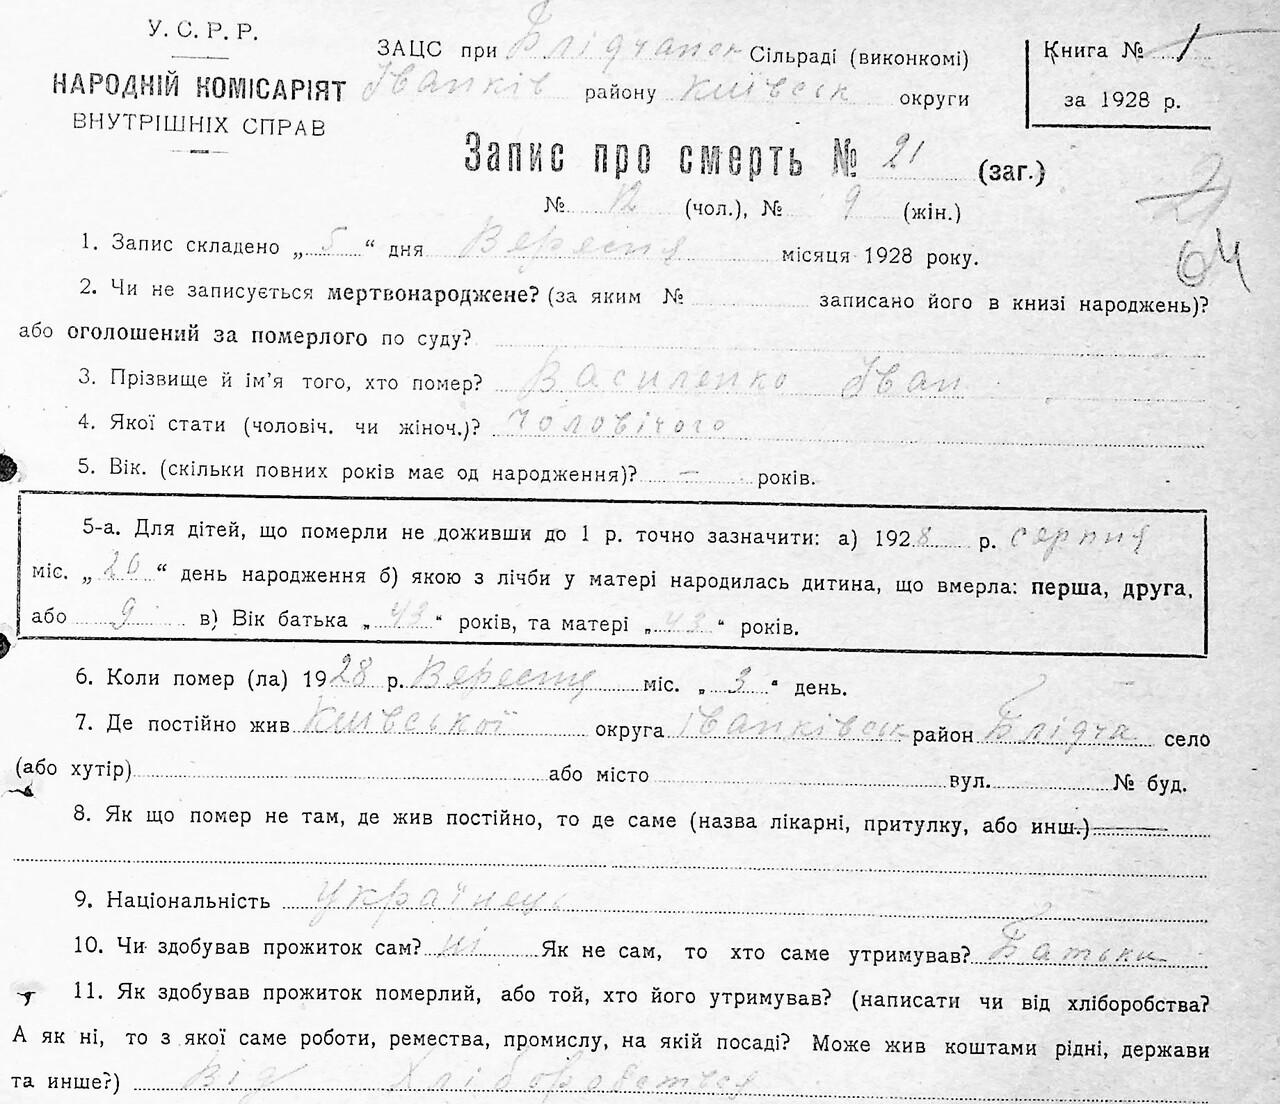 У. С. Р. Р.
НАРОДНІЙ КОМІСАРІЯТ
ВНУТРІШНІХ СПРАВ
ЗАЦС при Блідчанск Сільраді (виконкомі)
Іванків району Київськ округи
Книга № 1
за 1928 р.
Запис про смерть № 21 (заг.)
№ 12 (чол.), № 9 (жін.)
21
64
1. Запис складено „ 5 “ дня Вересня місяця 1928 року.
2. Чи не записується мертвонароджене? (за яким № записано його в книзі народжень)?
або оголошений за померлого по суду?
3. Прізвище й ім'я того, хто помер? Василенко Іван
4. Якої стати (чоловіч. чи жіноч.)? Чоловічого
5. Вік. (скільки повних років має од народження)? — років.
5-а. Для дітей, що померли не доживши до 1 р. точно зазначити: а) 1928 р. серпня
міс. „ 20 “ день народження б) якою з лічби у матері народилась дитина, що вмерла: перша, друга,
або 9 в) Вік батька „ 43 “ років, та матері „ 43 “ років.
6. Коли помер (ла) 1928 р. Вересня міс. „ 3 “ день.
7. Де постійно жив Київської округа Іванківськ район Блідча село
(або хутір) або місто вул. № буд.
8. Як що помер не там, де жив постійно, то де саме (назва лікарні, притулку, або инш.)
9. Національність Українець
10. Чи здобував прожиток сам? ні Як не сам, то хто саме утримував? Батьки
11. Як здобував прожиток померлий, або той, хто його утримував? (написати чи від хліборобства?
А як ні, то з якої саме роботи, ремества, промислу, на якій посаді? Може жив коштами рідні, держави
та инше?) Від Хліборобства